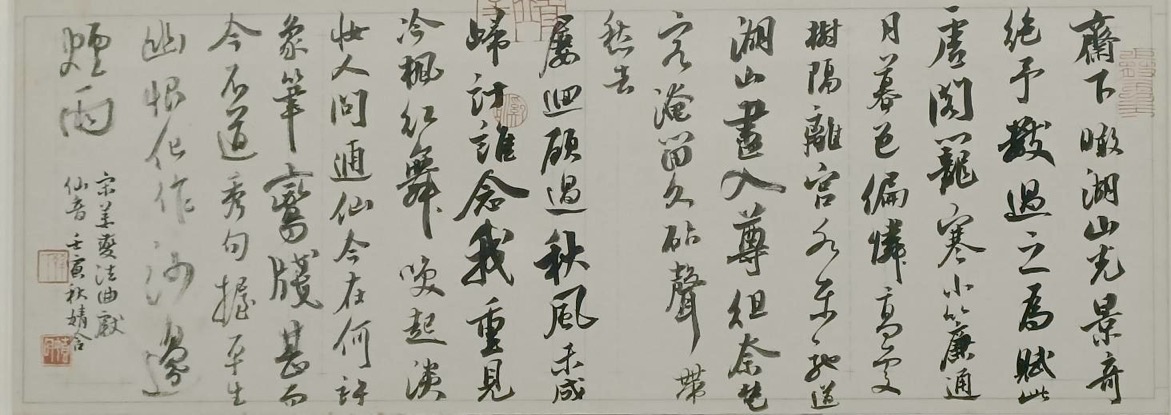 齋下瞰湖山光景奇
絕予數過之為賦此
虛閣籠寒小簾通
月暮色偏憐高處
樹隔離宮水平馳道
湖山盡入尊俎奈楚
客淹留久砧聲帶
愁去
屢迴顧過秋風未成
歸計誰念我重見
冷楓紅舞喚起淡
妝人問逋仙今在何許
象筆鸞牋甚而
今不道秀句握平生
幽恨化作沙邊
煙雨
宋姜夔法曲獻
仙音 壬寅秋婧